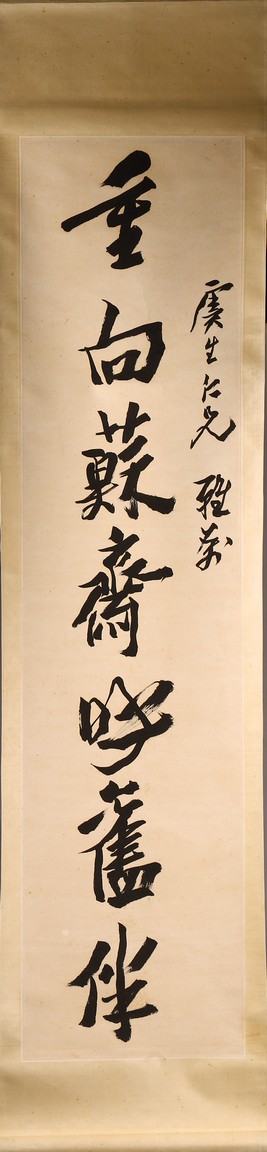 虞生仁兄 雅
重向蘇齋呼舊伴